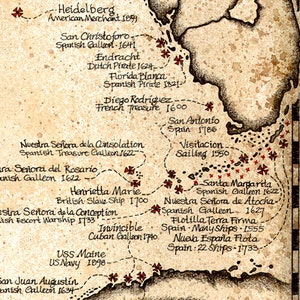 Heidelberg
American Merchant 1859
San Christoforo
Spanish Galleon - 1641
Endracht
Dutch Pirate 1624
Florida Blanca
Spanish Pirate 1321
Diego Rodriguez
French Treasure 1600
San Antonio
Spain - 1768
Nuestra Señora de la Consolation
Spanish Treasure Galleon 1622
Visitacion
Sailing 1550
ra Señora del Rosario
nish Galleon 1622
Santa Margarita
Spanish Galleon 1622
Henrietta Marie
British Slave Ship 1700
Nuestra Señora de Atocha
Spanish Galleon - 1627
a Señora de la Conception
h Escort Warship 1733
Flotilla Terra Firma
Spain - Many Ships - 1555
Invincible
Cuban Galleon 1740
Nueva España Flota
Spain: 22 Ships - 1733
USS Maine
US Navy 1898
San Juan Augustin
Spanish Galleon 1634